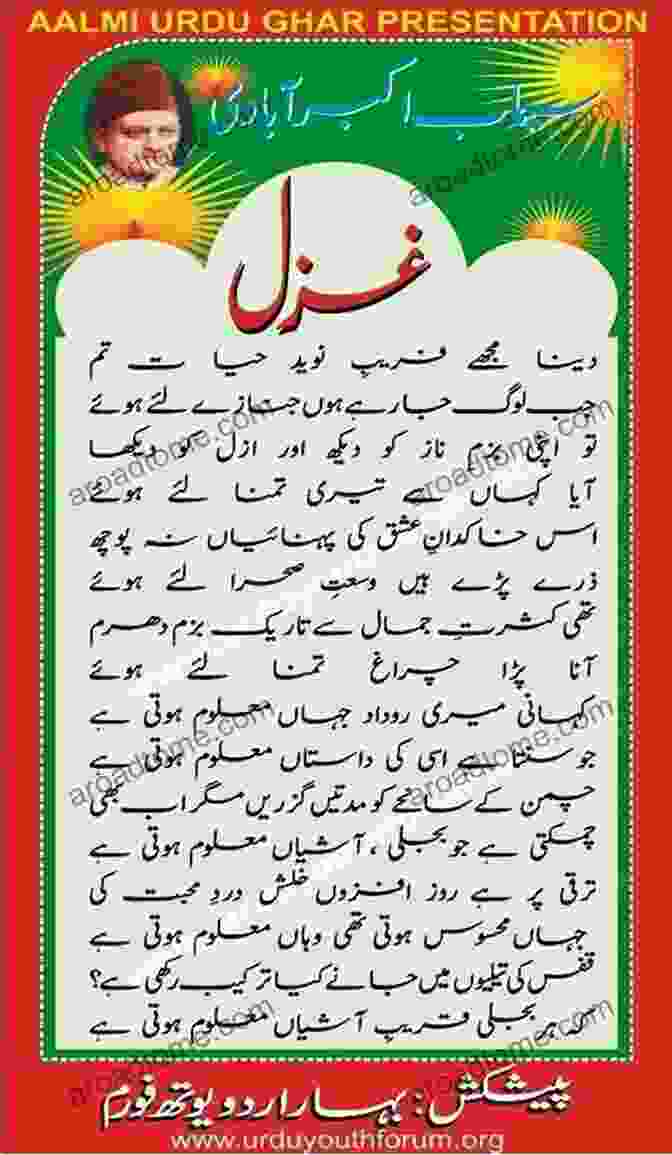 AALMI URDU GHAR PRESENTATION
سیماب اکبر آبادی
غزل
دینا مجھے فریبِ نویدِ حیات تم
جب لوگ جا رہے ہوں جنازے لئے ہوئے
تو اپنی بزمِ ناز کو دیکھ اور ازل کو دیکھا
آیا کہاں سے تیری تمنا لئے ہوئے
اس خاکدانِ عشق کی پہنائیاں نہ پوچھ
ذرے پڑے ہیں وسعتِ صحرا لئے ہوئے
تھی کثرتِ جمال سے تاریک بزم دھرم
آنا پڑا چراغِ تمنا لئے ہوئے
کہانی میری رودادِ جہاں معلوم ہوتی ہے
جو سنتا ہے اسی کی داستاں معلوم ہوتی ہے
چمن کے سانحے کو مدتیں گزریں مگر اب بھی
چمکتی ہے جو بجلی، آشیاں معلوم ہوتی ہے
ترقی پر ہے روز افزوں خلش دردِ محبت کی
جہاں محسوس ہوتی تھی وہاں معلوم ہوتی ہے
قفس کی تیلیوں میں جانے کیا ترکیب رکھی ہے؟
کہ ہر بجلی قریبِ آشیاں معلوم ہوتی ہے
پیشکش: بہار اردو یوتھ فورم
www.urduyouthforum.org
aroadtome.com
aroadtome.com
aroadtome.com
aroadtome.com
aroadtome.com
aroadtome.com
aroadtome.com
aroadtome.com